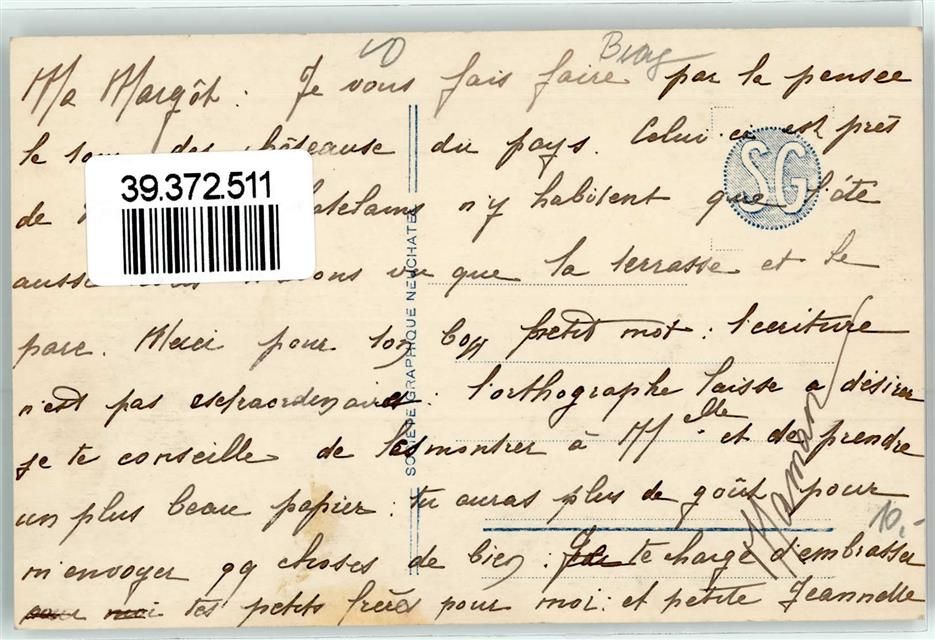 10 Burg
Ma Margôt : Je vous fais faire par la pensée
le tour des châteause du pays. Celui ci est près
de n'y habitent que l'été
aussi avons vu que la terrasse et le
parc. Merci pour ton bon petit mot : l'ecriture
n'est pas extraordinaire : l'orthographe laisse a désirer
je te conseille de les montrer à Mlle et de prendre
un plus beau papier : tu auras plus de goût pour
m'envoyer qq choses de bien : Je te charge d'embrasser
pour moi tes petits frères pour moi : et petite Jeannette
Maman
10.-
SG
SOCIÉTÉ GRAPHIQUE NEUCHATEL
39.372.511